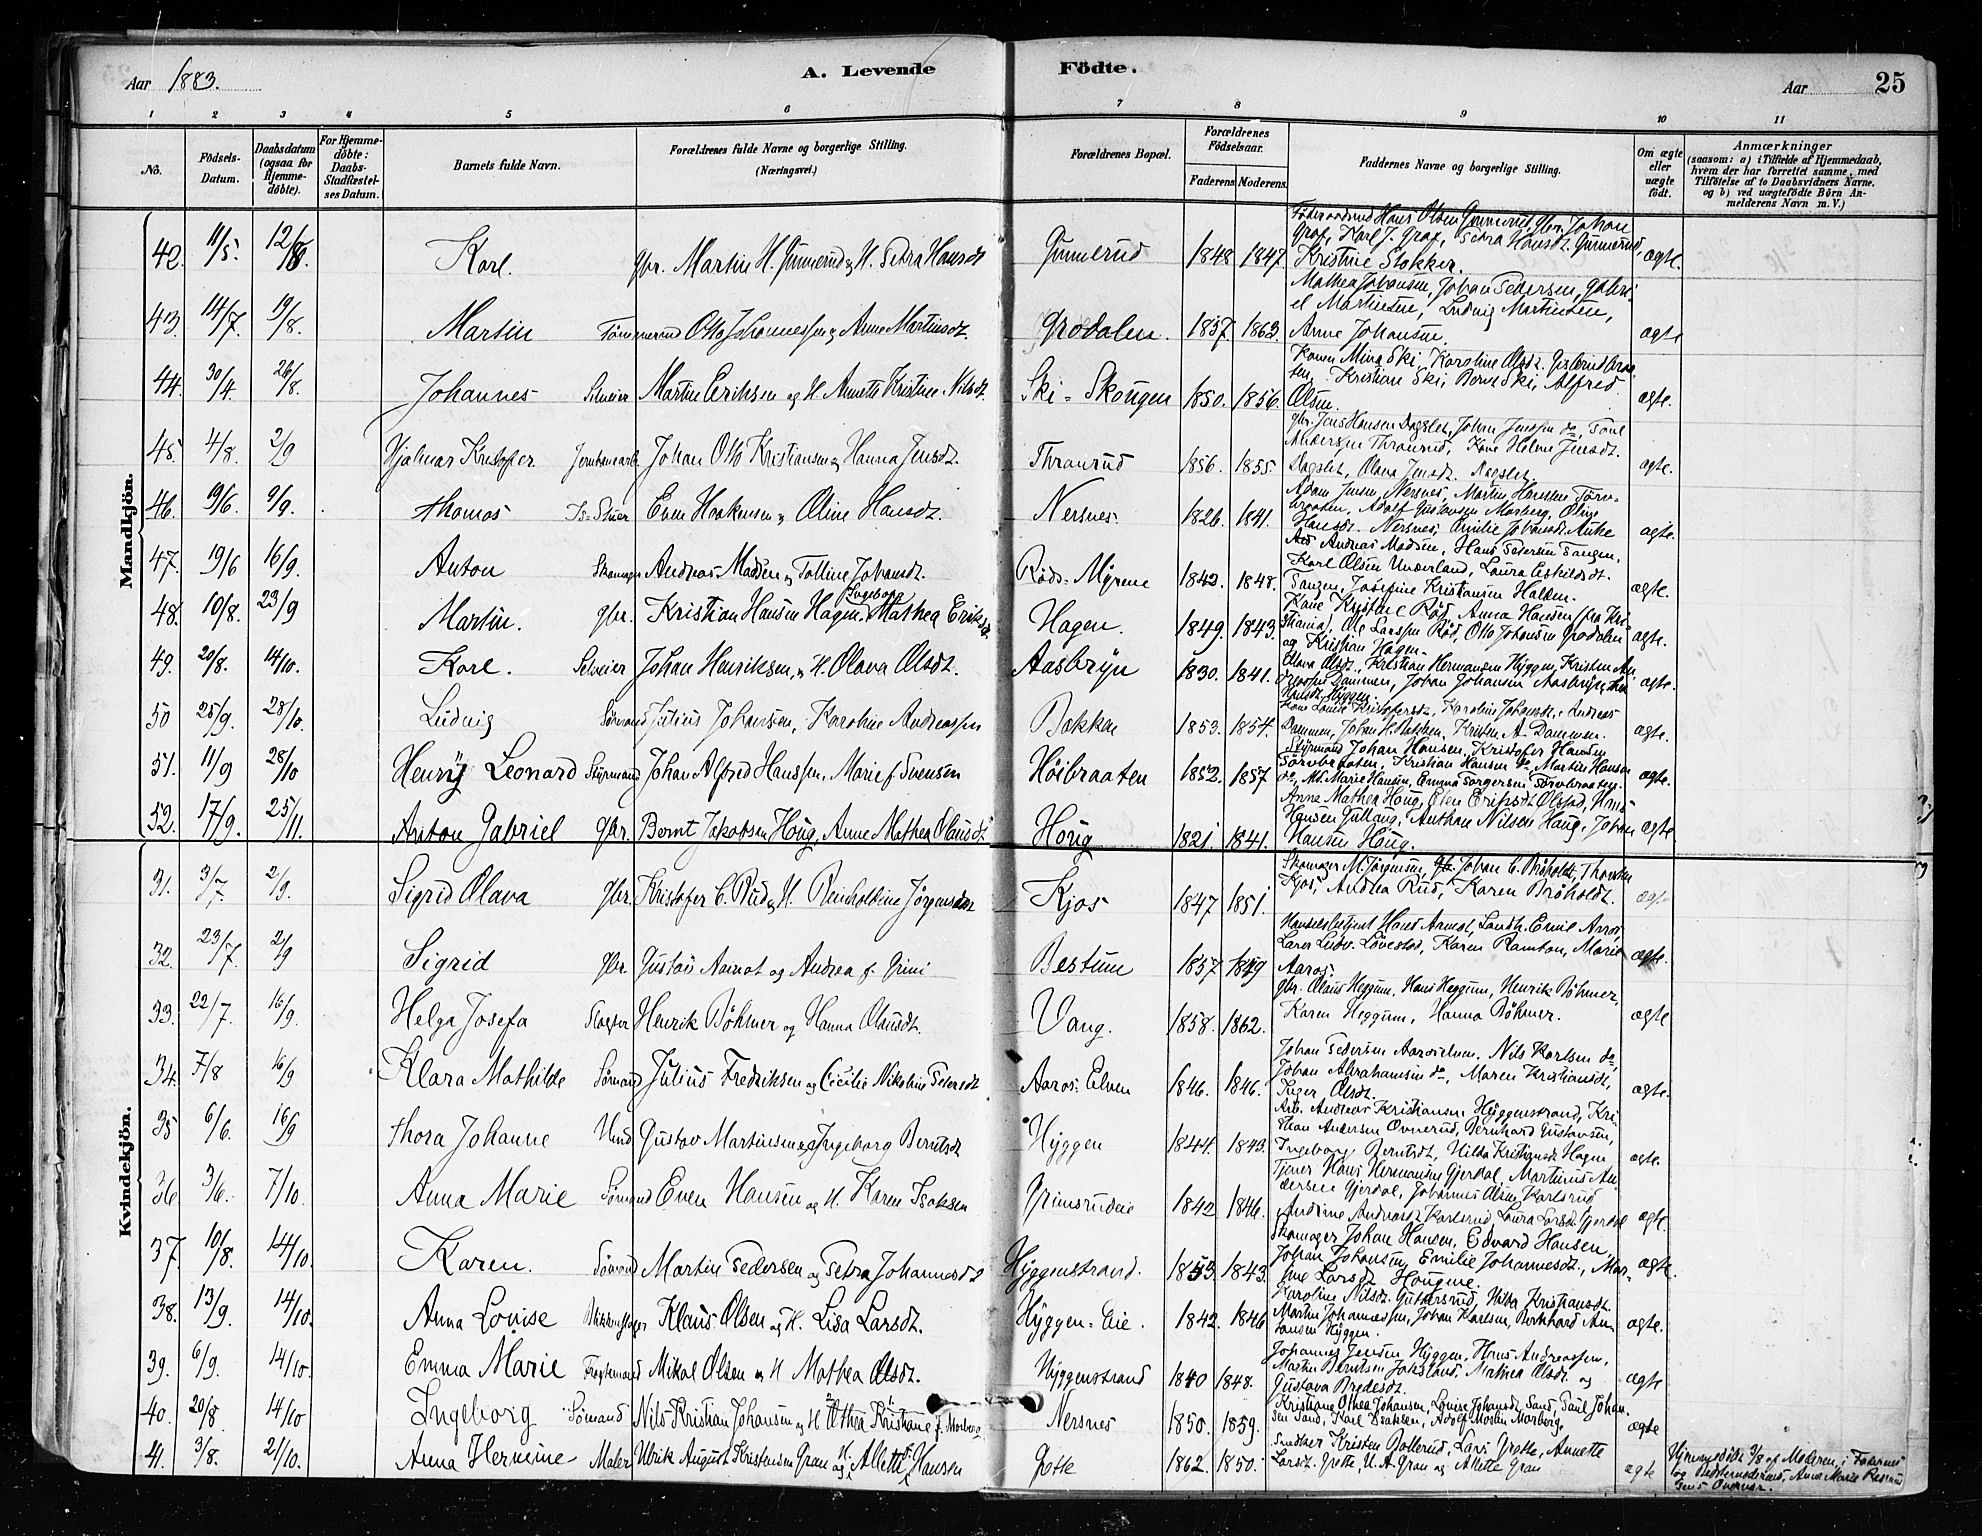 Aar 1883.
A. Levende Födte.
Aar 25
1 2 3 4 5 6 7 8 9 10 11
No.
Födsels-Datum.
Daabsdatum (ogsaa for Hjemme-döbte).
For Hjemme-döbte: Daabs-Stadfæstel-ses Datum.
Barnets fulde Navn.
Forældrenes fulde Navne og borgerlige Stilling. (Næringsvei.)
Forældrenes Bopæl.
Forældrenes Födselsaar.
Faderens. Moderens.
Faddernes Navne og borgerlige Stilling.
Om ægte eller uægte født.
Anmærkninger
(saasom: a) i Tilfælde af Hjemmedaab, hvem der har forrettet samme, med Tilföielse af to Daabsvidners Navne, og b) ved uægtefödte Börn Anmelderens Navn m. V.)
Mandkjön.
42. 11/5. 12/8. Karl. gbr. Martin H. Gunnerud og H. Petra Hansdt Gunnerud 1848 1847 Hans Olsen Gunnerud, gbr. Johan Graf, Karl J. Graf, Petra Hansdt. Gunnerud, Kristine Stokker. ægte.
43. 14/7. 19/8. Martin Tömmermd Otto Johannessen og Anne Martinsdt. Grodalen. 1857. 1863. Mathea Johansen, Johan Pedersen, Gabriel Martinsen, Ludvig Martinsen, Anne Johansen. ægte
44. 30/4. 26/8. Johannes Selveier Martin Eriksen og H. Annette Kristine Nilsdt. Ski-Skougen 1850. 1856. Karen Mina Ski, Karoline Olsdt. Kristian Ski, Bernt Ski, Alfred Olsen. ægte.
45. 4/8. 2/9 Hjalmar Kristofer Jernbanearb. Johan Otto Kristiansen og Hanna Jensdt. Thranrud 1856. 1855. gbr. Jens Hansen Dagslet, Johan Jenssen do, Paul Andersen Thranrud, Kone Helene Jensdt. Dagslet, Olava Jensdt. Dagslet. ægte.
46. 19/6. 9/9. Thomas Even Haakensen og Oline Hansdt. Nersnes. 1826. 1841. Adam Jensen, Nersnes, Martin Hanssen Törvbraaten, Adolf Gustavsen Morberg, Oline Hansdt. Nersnes, Emilie Johansdt. ægte.
47. 19/6 16/9. Anton Skomager Andreas Madsen og Talline Johansdt. Röds-Myrene 1842. 1848. Andreas Madsen, Hans Pedersen Tangen, Karl Olsen Underland, Laura Eskildsdt. Tangen, Josefine Kristiansen Halden. ægte.
48. 10/8. 23/9 Martin. gbr. Kristian Hansen Hagen, Ingeborg Mathea Eriksdt. Hagen. 1849. 1843. Kone Kristine Röd, Anna Hansen (fra Kristiania), Ole Larssen Röd, Otto Johansen Grodalen og Kristian Hagen. ægte.
49. 20/8. 14/10. Karl. Selveier Johan Henriksen, og H. Olava Olsdt. Aasbryn 1830. 1841. Olava Olsdt., Kristian Hermansen Hyggen, Kristen Andreassen Dammen, Johan Johansen Aasbryn, Hansdt. Hyggen. ægte.
50 25/9. 28/10. Ludvig Sömand Julius Johansen, Karoline Andreassen Bakken 1853. 1854. Kone Lovise Kristofersdt., Karoline Johansdt., Andreas Dammen, Johan H. Bakken, Kristen A. Dammen. ægte.
51. 11/9 28/10 Henry Leonard Styrmand Johan Alfred Hanssen, Marie f. Svensen Höibraaten 1852. 1857 Styrmand Johan Hansen, Kristofer Hansen Törvbraaten, Kristian Hansen do, Martin Hansen do, Md. Marie Hansen, Emma Torgersen Törvbraaten. ægte.
52. 17/9. 25/11. Anton Gabriel gbr. Bernt Jakobsen Houg, Anne Mathea Olausdt. Houg 1821. 1841. Anne Mathea Houg, Hans Hansen Gultaug, Anthon Nilsen Houg, Johan Hansen Houg. ægte
Kvindekjön.
31. 3/7. 2/9. Sigrid Olava gbr. Kristofer C. Rud og H. Reinholdine Jörgensdtr Kjos 1847 1851. Skomager M. Jörgensen, gb. Johan C. Bröholdt, Thorsten Kjos, Andrea Rud, Karen Bröholdt. ægte
32. 23/7. 2/9 Sigrid gbr. Gustav Aamot og Andrea f. Grini Bestum 1857 1849 Handelsbetjent Hans Arnesd, Landh. Emil Aaros, Lars Ludv. Lövestad, Karen Ramton, Marie Aaros. ægte.
33. 22/7. 16/9. Helga Josefa Slagter Henrik Böhmer og Hanna Olausdt. Vang. 1858. 1862. gbr. Olaus Heggum, Hans Heggum, Henrik Böhmer, Karen Heggum, Hanna Böhmer. ægte
34. 7/8 16/9 Klara Mathilde Sömand Julius Fredriksen og Cecilie Nikoline Pedersdt Aaros-Elven 1846. 1846. Johan Pedersen Aaroselven, Nils Karlsen do, Johan Abrahamsen do, Maren Kristiansdt, Inger Olsdt. ægte.
35 6/6. 16/9 Thora Johanne Gustav Martinsen og Ingeborg Berntsdt Hyggen 1844. 1843. Arb. Andreas Kristiansen Hyggenstrand, Kristian Andersen Ovnerud, Bernhard Gustavsen, Ingeborg Berntsdt, Hilda Kristiansdt. Hagen ægte.
36 3/6. 7/10. Anna Marie Sömand Even Hansen og H. Karen Isaksen Grimsrudeie 1842 1846. Tjener Hans Hermansen Gjerdal, Martinus Andersen Gjerdal, Johannes Olsen Karlsrud Andrine Andreasdt Karlsrud, Laura Larsdt. Gjerdal ægte.
37. 10/8. 14/10. Karen. Sömand Martin Pedersen og Petra Johannesdt Hyggenstrand. 1853. 1843. Skomager Johan Hansen, Edvard Hansen, Johan Johansen, Emilie Johannesdt., Martine Larsdt. Hougene. ægte.
38. 13/9. 14/10. Anna Lovise Blikkenslager Klaus Olsen og H. Lisa Larsdt. Hyggen-Eie. 1842. 1846 Karoline Nilsdt. Guttersrud, Hilda Kristiansdt. Martin Johannessen, Johan Karlsen, Hyggen. ægte.
39. 6/9. 14/10. Emma Marie Fragtemand Mikal Olsen og H Mathea Olsdt. Hyggenstrand 1840 1848. Johannes Jensen Hyggen, Hans Andreassen, Martin Berntsen Jaksland, Mathea Olsdt. og Gustava Bredesdt. ægte
40. 20/8. 14/10 Ingeborg Sömand Nils Kristian Johansen og H Othea Kristiane f. Morberg Nersnes 1850. 1859. Kristiane Othea Johansen, Lovise Johansdt. Sand, Paul Johansen Sand, Karl Isaksen, Adolf Martin Morberg. ægte
41. 3/8. 21/10. Anna Hermine Maler Ulrik August Kristensen Gran og H. Alette f. Hansen Grette 1862. 1850. Snedker Kristen Bollerud, Lars Grette, Annette Larsdt. Grette, U. A. Gran og Alette Gran ægte Hjemmedöbt 3/8 af Moderen, i Faderens og Bedstemoderens, Anne Marie Overvær.